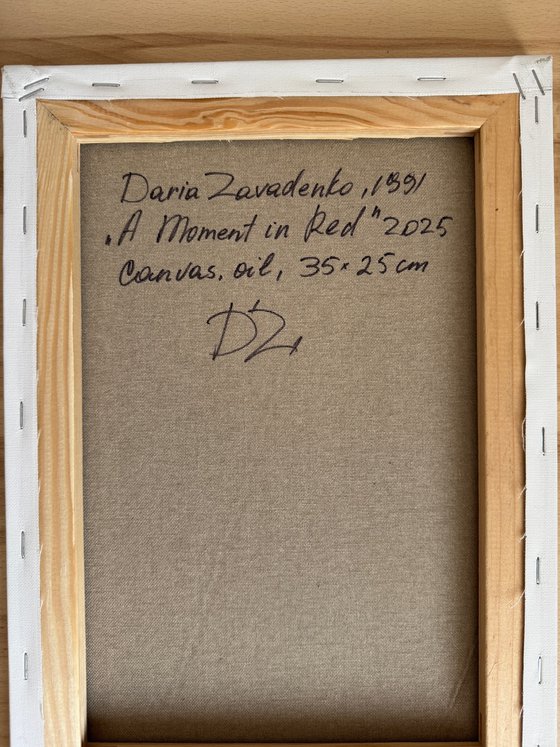 Daria Zavadenko, 1991
„A Moment in Red" 2025
Canvas. oil, 35×25 cm
DZ